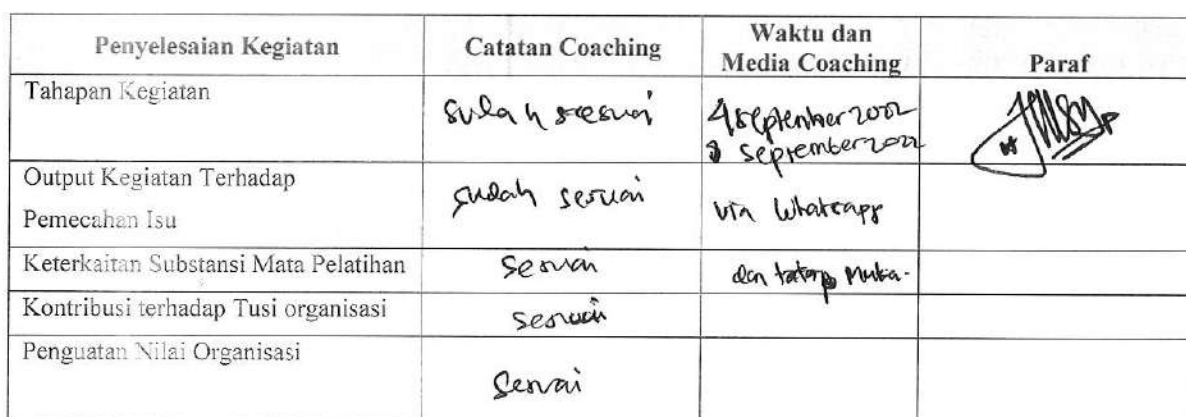 Penyelesaian Kegiatan
Catatan Coaching
Waktu dan
Media Coaching
Paraf
Tahapan Kegiatan
sudah sesuai
4 september 2022
8 september 2022
Output Kegiatan Terhadap
Pemecahan Isu
sudah sesuai
via Whatsapp
Keterkaitan Substansi Mata Pelatihan
sesuai
dan tatap Muka.
Kontribusi terhadap Tusi organisasi
sesuai
Penguatan Nilai Organisasi
sesuai